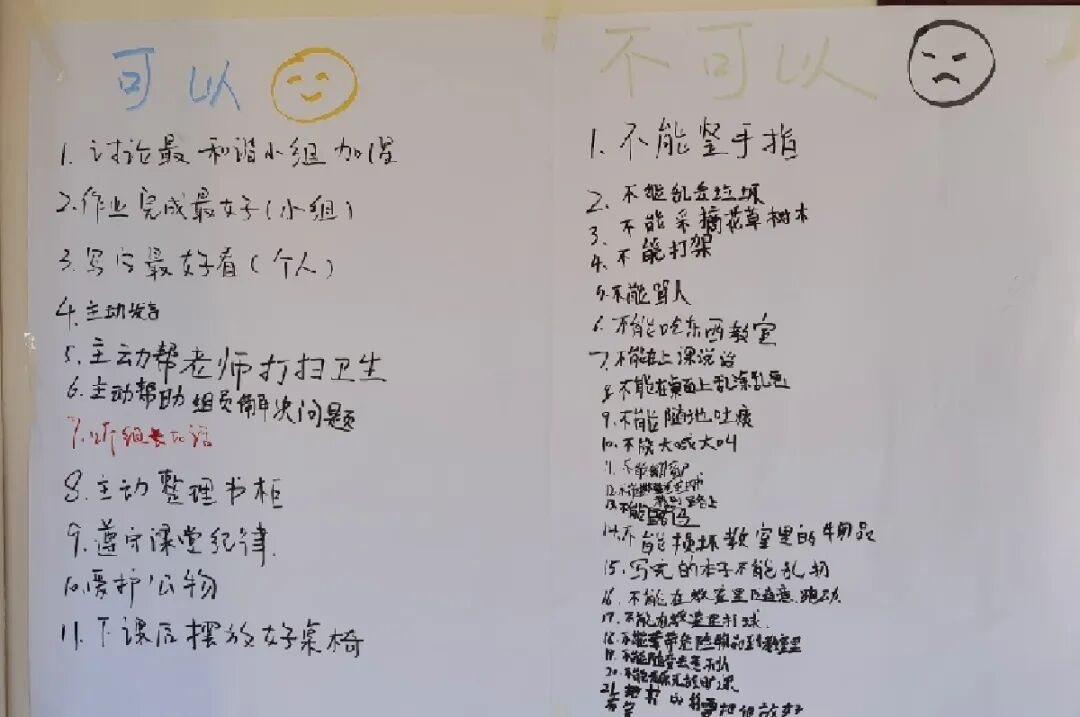 可以
1. 讨论最和谐小组加5分
2. 作业完成最好(小组)
3. 写字最好看(个人)
4. 主动发言
5. 主动帮老师打扫卫生
6. 主动帮助组员解决问题
7. 听组长的话
8. 主动整理书柜
9. 遵守课堂纪律
10. 爱护公物
11. 下课后摆放好桌椅
不可以
1. 不能竖手指
2. 不能乱丢垃圾
3. 不能采摘花草树木
4. 不能打架
5. 不能骂人
6. 不能吃东西教室
7. 不能在上课说话
8. 不能在桌面上乱涂乱画
9. 不能随地吐痰
10. 不能大喊大叫
11. 不能
12. 不能
13. 不能
14. 不能损坏教室里的用品
15. 写完的本子不能乱扔
16. 不能在教室里随意跑动
17. 不能在教室里打球
18. 不能携带危险物品到教室里
19. 不能随意
20. 不能 无故旷课
21. 把书